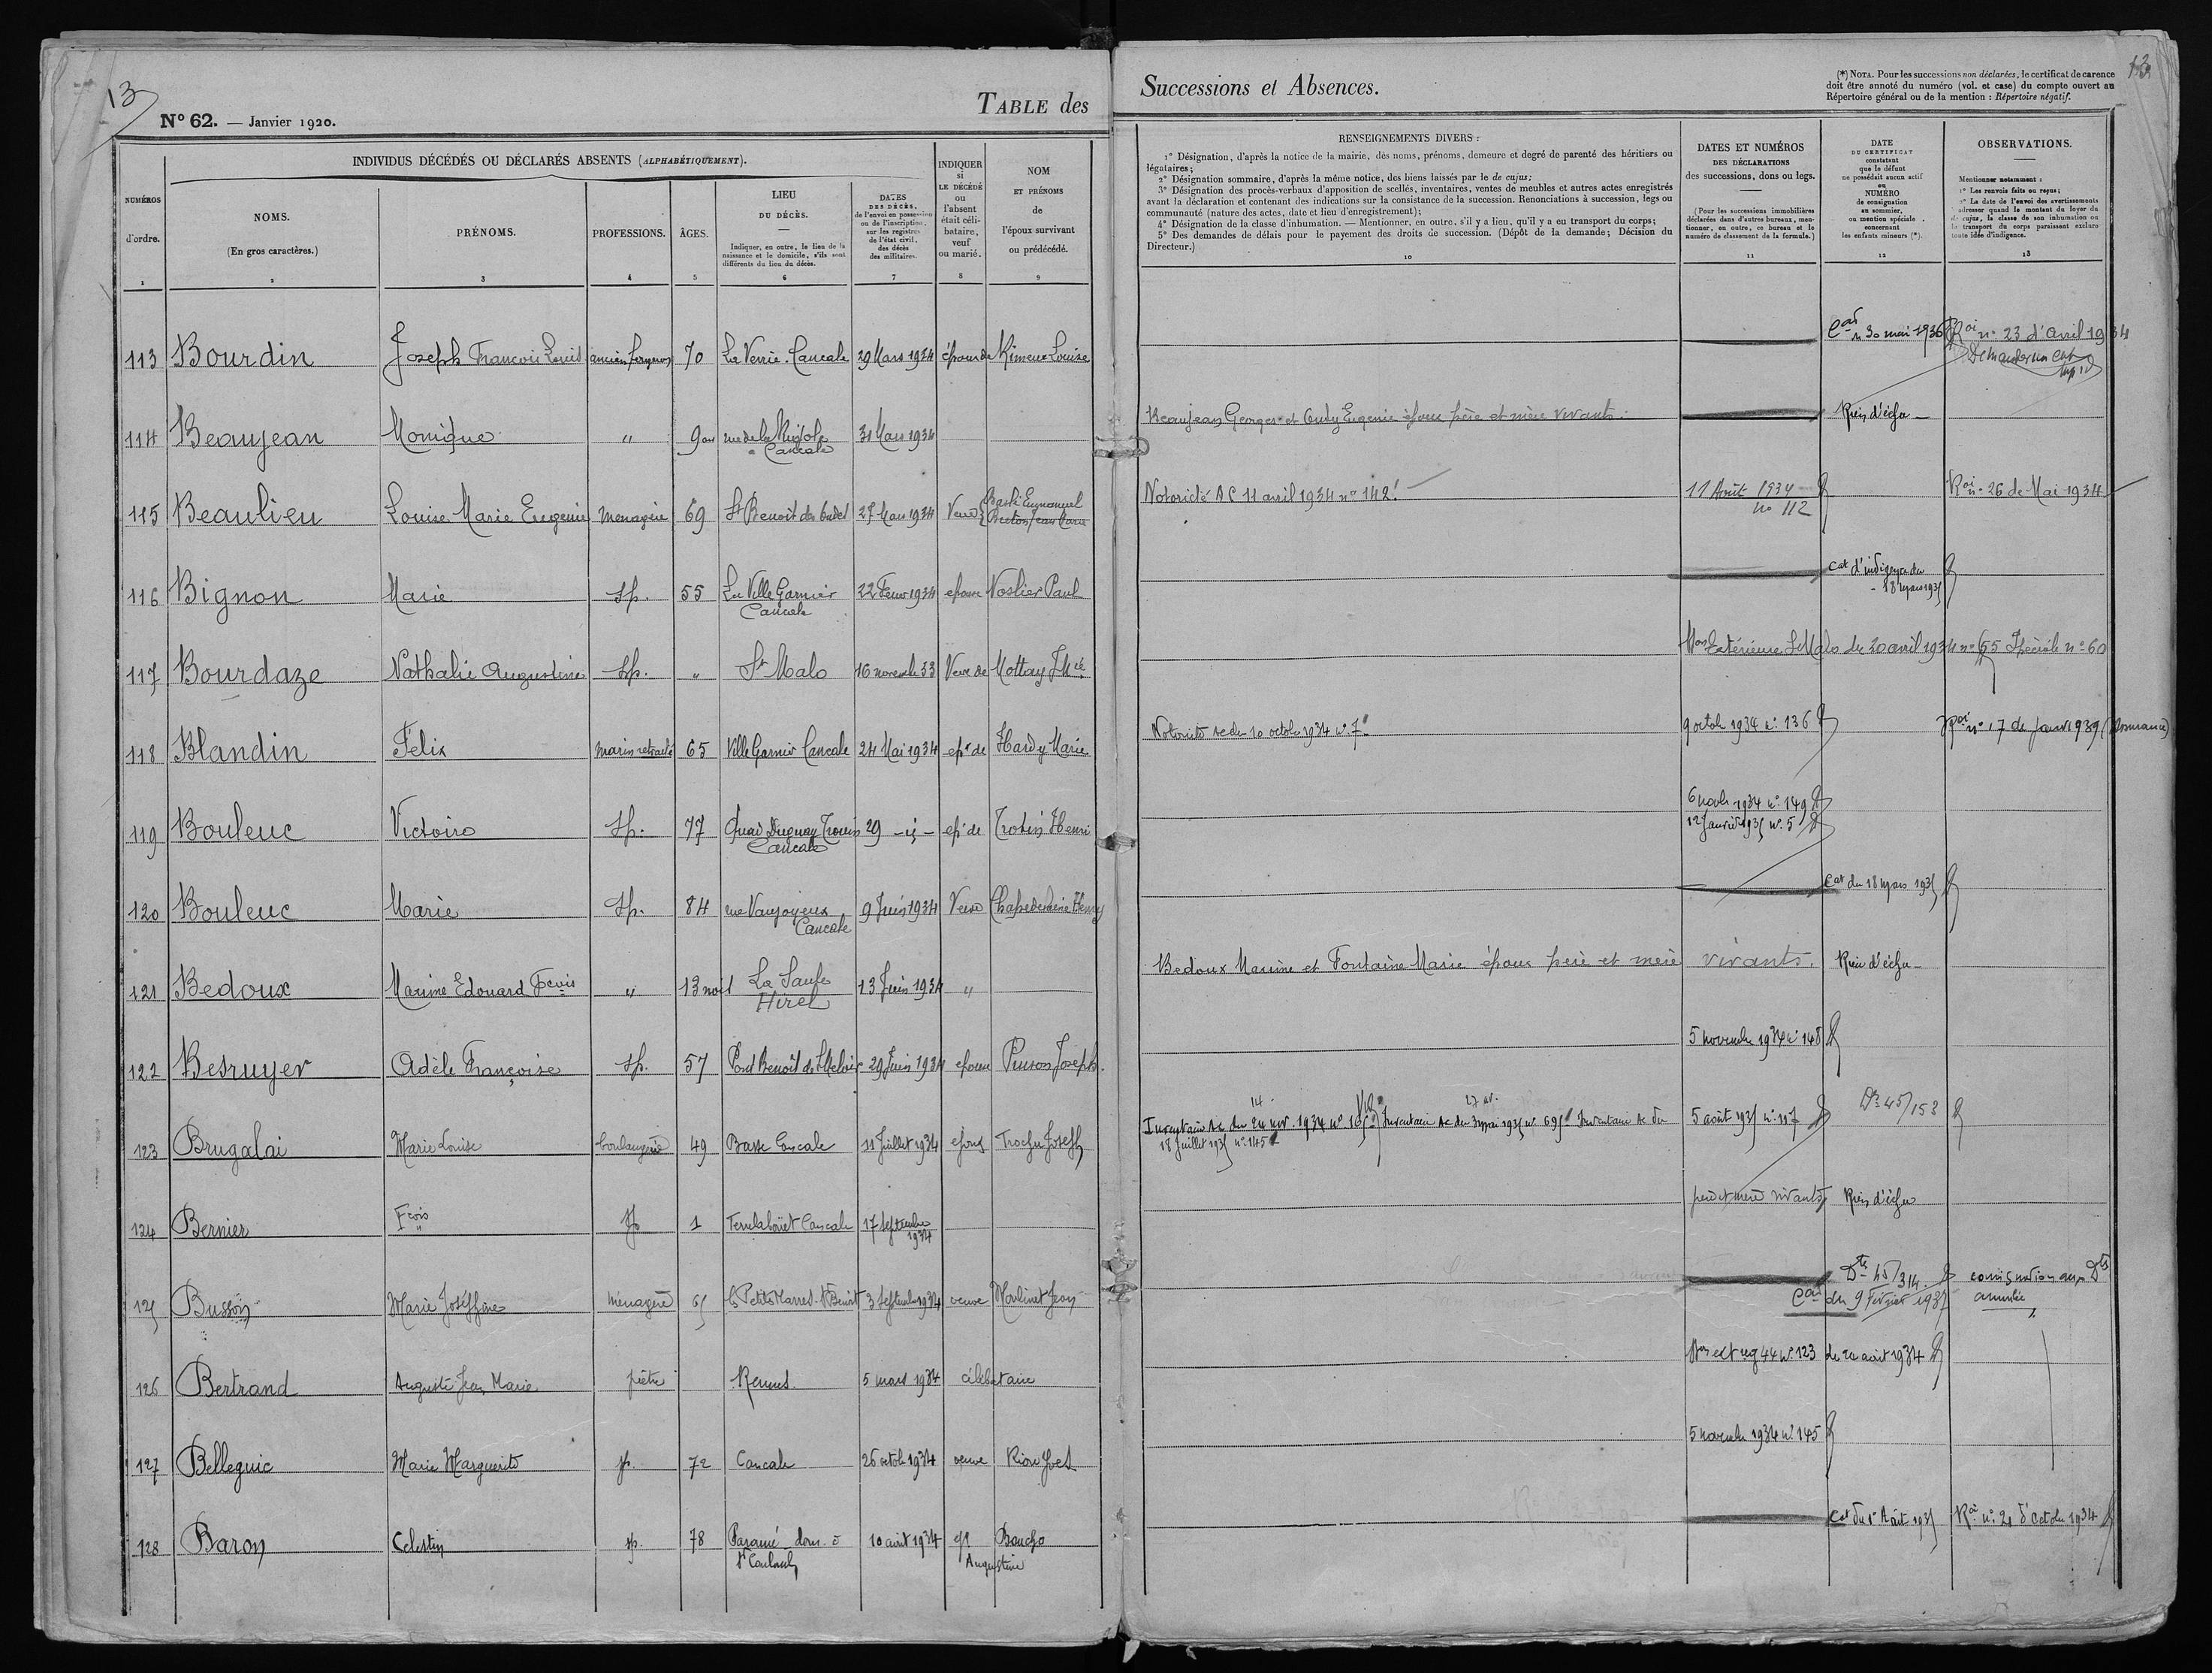 13
N° 62. — Janvier 1920.
TABLE des
INDIVIDUS DÉCÉDÉS OU DÉCLARÉS ABSENTS (ALPHABÉTIQUEMENT).
NUMÉROS
d'ordre.
1
NOMS.
(En gros caractères.)
2
PRÉNOMS.
3
PROFESSIONS.
4
ÂGES.
5
LIEU
DU DÉCÈS.
Indiquer, en outre, le lieu de la
naissance et le domicile, s'ils sont
différents du lieu du décès.
6
DATES
DES DÉCÈS,
de l'envoi en possession
ou de l'inscription,
sur les registres
de l'état civil,
des décès
des militaires.
7
INDIQUER
si
LE DÉCÉDÉ
ou
l'absent
était céli-
bataire,
veuf
ou marié.
8
NOM
ET PRÉNOMS
de
l'époux survivant
ou prédécédé.
9
113 Bourdin Joseph François Louis ancien 70 La Verrie. Cancale 29 Mars 1934 époux de Louise
114 Beaujean Monique " 9 rue de la Cancale 31 Mars 1934
115 Beaulieu Louise Marie Eugenie Menagère 69 St Benoit des Ondes 27 Mars 1934 Veuve Emmanuel
116 Bignon Marie sp. 55 La Ville Garnier Cancale 22 1934 epouse Noslier Paul
117 Bourdaze Nathalie Augustine sp. " St Malo 16 novemb 33 Veuve de Mottay
118 Blandin Felix marin retraité 65 Ville Garnier Cancale 24 Mai 1934 ep. de Hardy Marie
119 Bouleuc Victoire sp. 77 Quai Duguay Trouin Cancale 29 ep. de Trotin Henri
120 Bouleuc Marie sp. 84 rue Vaujoyeux Cancale 9 Juin 1934 Veuve
121 Bedoux Maxime Edouard Fcois " 13 mois Hirel 13 Juin 1934 "
122 Besruyer Adèle Françoise sp. 57 Pont Benoit de St Meloir 29 Juin 1934 epouse Pinson Joseph
123 Brugalai Marie Louise boulangère 49 Basse Cancale 11 Juillet 1934 Trochu Joseph
124 Bernier Fcois " sp 1 Terrelabouet Cancale 17 Septembre 1934
125 Busson Marie Joséphine Ménagère 65 St Benoit 3 Septemb 1934 veuve Moulinet Jean
126 Bertrand Auguste Jean Marie prêtre Rennes 5 mars 1934 célibataire
127 Belleguic Marie Marguerite sp. 72 Cancale 26 octob 1934 veuve Riou Yves
128 Baron Celestin sp. 78 Paramé dom. à St Coulomb 10 août 1934 Augustine
Successions et Absences.
13
(*) NOTA. Pour les successions non déclarées, le certificat de carence
doit être annoté du numéro (vol. et case) du compte ouvert au
Répertoire général ou de la mention : Répertoire négatif.
RENSEIGNEMENTS DIVERS :
1° Désignation, d'après la notice de la mairie, des noms, prénoms, demeure et degré de parenté des héritiers ou
légataires;
2° Désignation sommaire, d'après la même notice, des biens laissés par le de cujus;
3° Désignation des procès-verbaux d'apposition de scellés, inventaires, ventes de meubles et autres actes enregistrés
avant la déclaration et contenant des indications sur la consistance de la succession. Renonciations à succession, legs ou
communauté (nature des actes, date et lieu d'enregistrement);
4° Désignation de la classe d'inhumation. — Mentionner, en outre, s'il y a lieu, qu'il y a eu transport du corps;
5° Des demandes de délais pour le payement des droits de succession. (Dépôt de la demande; Décision du
Directeur.)
10
DATES ET NUMÉROS
DES DÉCLARATIONS
des successions, dons ou legs.
(Pour les successions immobilières
déclarées dans d'autres bureaux, men-
tionner, en outre, ce bureau et le
numéro de classement de la formule.)
11
DATE
DU CERTIFICAT
constatant
que le défunt
ne possédait aucun actif
ou
NUMÉRO
de consignation
au sommier,
ou mention spéciale
concernant
les enfants mineurs (*).
12
OBSERVATIONS.
Mentionner notamment :
1° Les renvois faits ou reçus;
2° La date de l'envoi des avertissements
à adresser quand le montant du loyer du
de cujus, la classe de son inhumation ou
le transport du corps paraissent exclure
toute idée d'indigence.
13
30 mai 1936 n° 23 d'Avril 1934
Beaujean Georges et Eugenie époux père et mère vivants Rien d'échu
Notoriété AC 11 avril 1934 n° 142 11 Août 1934 no 112 n° 26 de Mai 1934
Cat d'indigence du 18 mars 1935
Extérieure St Malo du 20 avril 1934 n° 65 Spéciale n° 60
Notoriété Ac du 10 octob 1934 n° 7 9 octob 1934 n° 136 n° 17 de Janv 1939
6 1934 n° 149
12 Janvier 1935 n° 5
Cat du 18 mars 1935
Bedoux Maxime et Fontaine Marie époux père et mère vivants. Rien d'échu
5 novemb 1934 n° 148
Inventaire Ac du 24 nov. 1934 Inventaire Ac du 3 mai 1935 n° 69 Inventaire Ac du
18 Juillet 1935 n° 145 5 août 1935 n° 117 45/153
père et mère vivants Rien d'échu
45/314 consignation aux Dts
du 9 Février 1937 annulée
ext reg 44 n° 123 du 20 août 1934
5 novemb 1934 n° 145
Cat du 1er Août 1935 n° 21 d'Octobre 1934